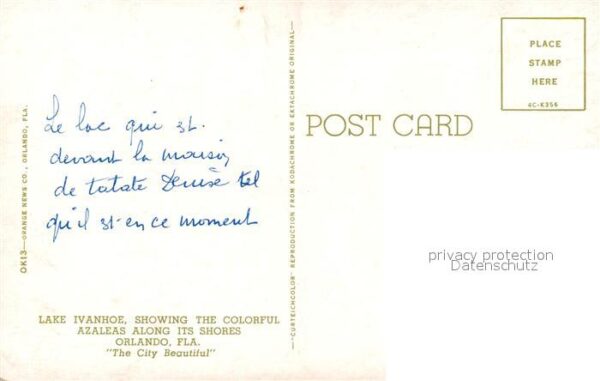 Le lac qui st.
devant la maison
de tatate Denise tel
qu'il st en ce moment
LAKE IVANHOE, SHOWING THE COLORFUL
AZALEAS ALONG ITS SHORES
ORLANDO, FLA.
"The City Beautiful"
OK13—ORANGE NEWS CO., ORLANDO, FLA.
"CURTEICHCOLOR" REPRODUCTION FROM KODACHROME OR EKTACHROME ORIGINAL
POST CARD
PLACE
STAMP
HERE
4C-K356
privacy protection
Datenschutz